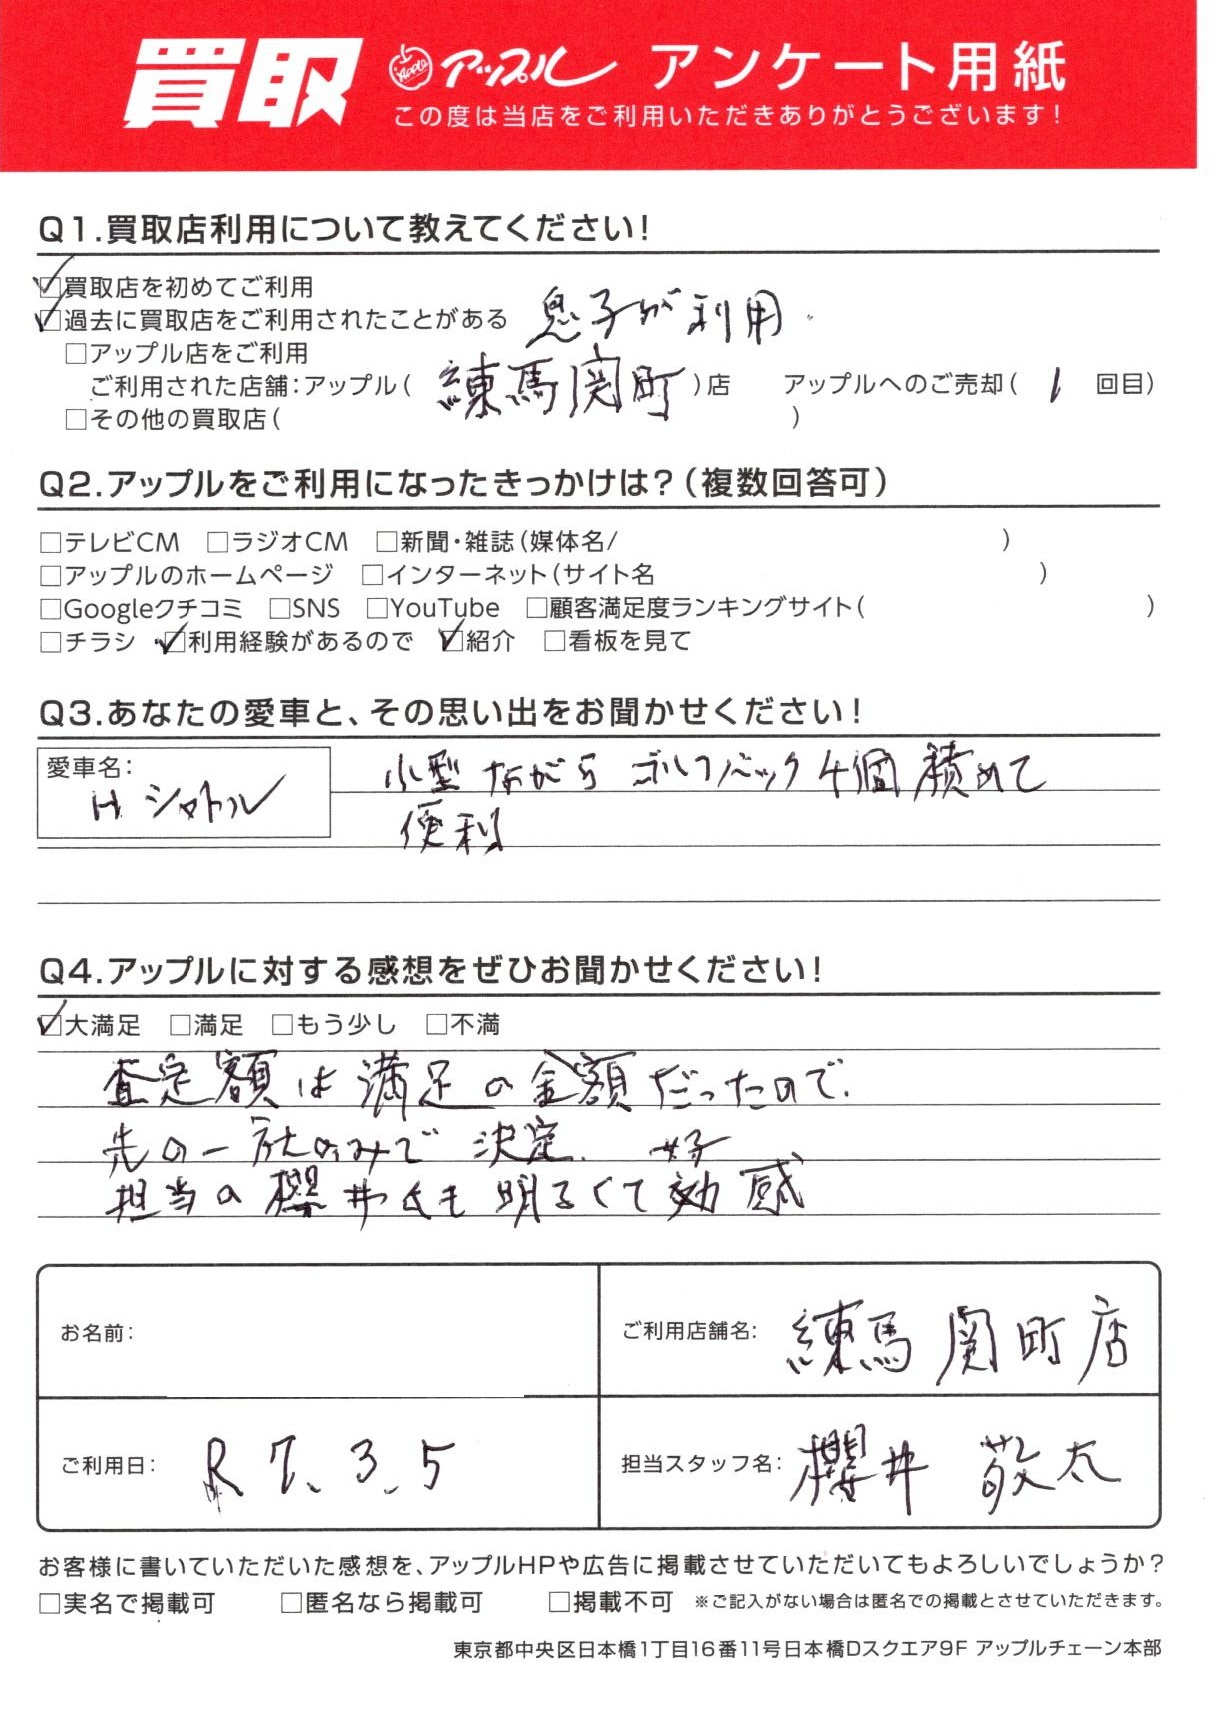 買取 Apple アップル アンケート用紙
この度は当店をご利用いただきありがとうございます!
Q1.買取店利用について教えてください!
☑買取店を初めてご利用
☑過去に買取店をご利用されたことがある 息子が利用
□アップル店をご利用
ご利用された店舗:アップル( 練馬関町 )店 アップルへのご売却( 1 回目)
□その他の買取店( )
Q2.アップルをご利用になったきっかけは?(複数回答可)
□テレビCM □ラジオCM □新聞・雑誌(媒体名/ )
□アップルのホームページ □インターネット(サイト名 )
□Googleクチコミ □SNS □YouTube □顧客満足度ランキングサイト( )
□チラシ ☑利用経験があるので ☑紹介 □看板を見て
Q3.あなたの愛車と、その思い出をお聞かせください!
愛車名: H シャトル
小型ながら ゴルフバック4個積めて
便利
Q4.アップルに対する感想をぜひお聞かせください!
☑大満足 □満足 □もう少し □不満
査定額は満足の金額だったので.
先の一社のみで 決定.
担当の櫻井氏も明るくて好感
お名前:
ご利用店舗名: 練馬関町店
ご利用日: R7.3.5
担当スタッフ名: 櫻井 敬太
お客様に書いていただいた感想を、アップルHPや広告に掲載させていただいてもよろしいでしょうか?
□実名で掲載可 □匿名なら掲載可 □掲載不可 ※ご記入がない場合は匿名での掲載とさせていただきます。
東京都中央区日本橋1丁目16番11号日本橋Dスクエア9F アップルチェーン本部